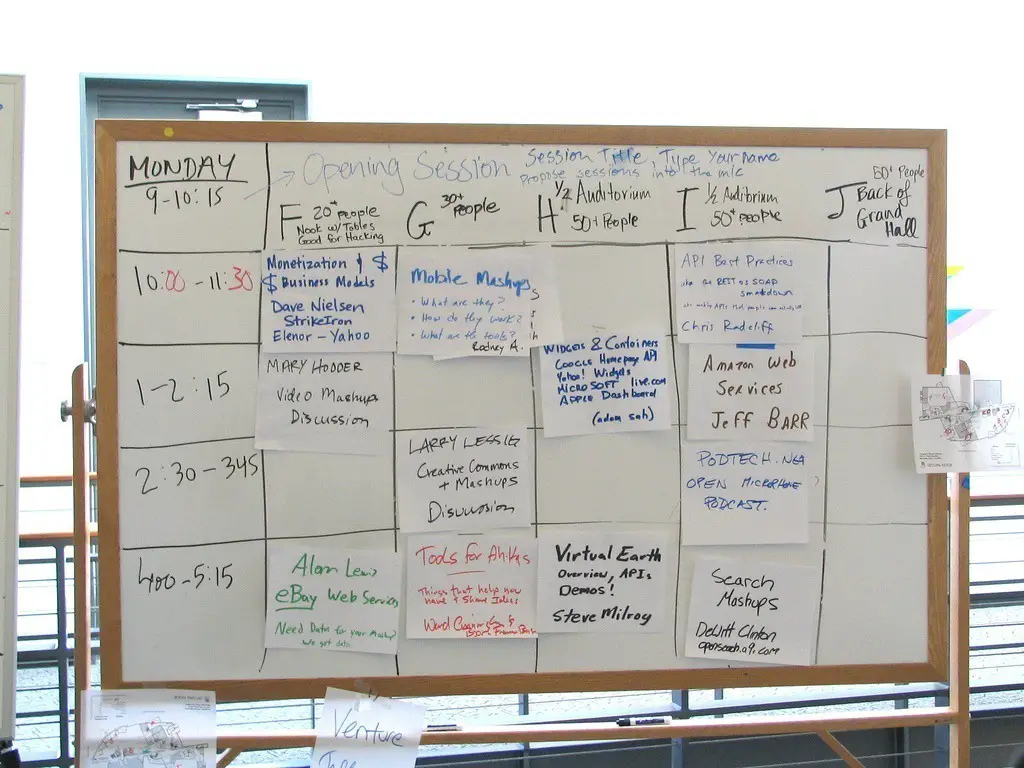 MONDAY
9-10:15
Opening Session
Session Title, Type Your name
Propose sessions into the mic
F 20+ people
Nook w/ Tables
Good for Hacking
G 30+ People
H 1/2 Auditorium
50+ People
I 1/2 Auditorium
50+ people
J 50+ People
Back of
Grand
Hall
10:00 - 11:30
Monetization & $
$ Business Models
Dave Nielsen
StrikeIron
Elenor - Yahoo
Mobile Mashups
• What are they?
• How do they work?
• What are the tools?
Rodney A.
API Best Practices
aka the REST vs SOAP
smackdown
Chris Radcliff
1-2:15
MARY HODDER
Video Mashups
Discussion
WIDGETS & Containers
GOOGLE Homepage API
Yahoo! Widgets
MICROSOFT live.com
APPLE Dashboard
(adam sah)
Amazon Web
Services
JEFF BARR
2:30 - 345
LARRY LESSIG
Creative Commons
+ Mashups
Discussion
PODTECH.NET
OPEN MICROPHONE
PODCAST.
400 - 5:15
Alan Lewis
eBay Web Services
Need Data for your Mashup?
We got data.
Tools for
Things that help
+ Share Ideas
Virtual Earth
Overview, APIs
Demos!
Steve Milroy
Search
Mashups
DeWitt Clinton
opensearch.a9.com
Venture